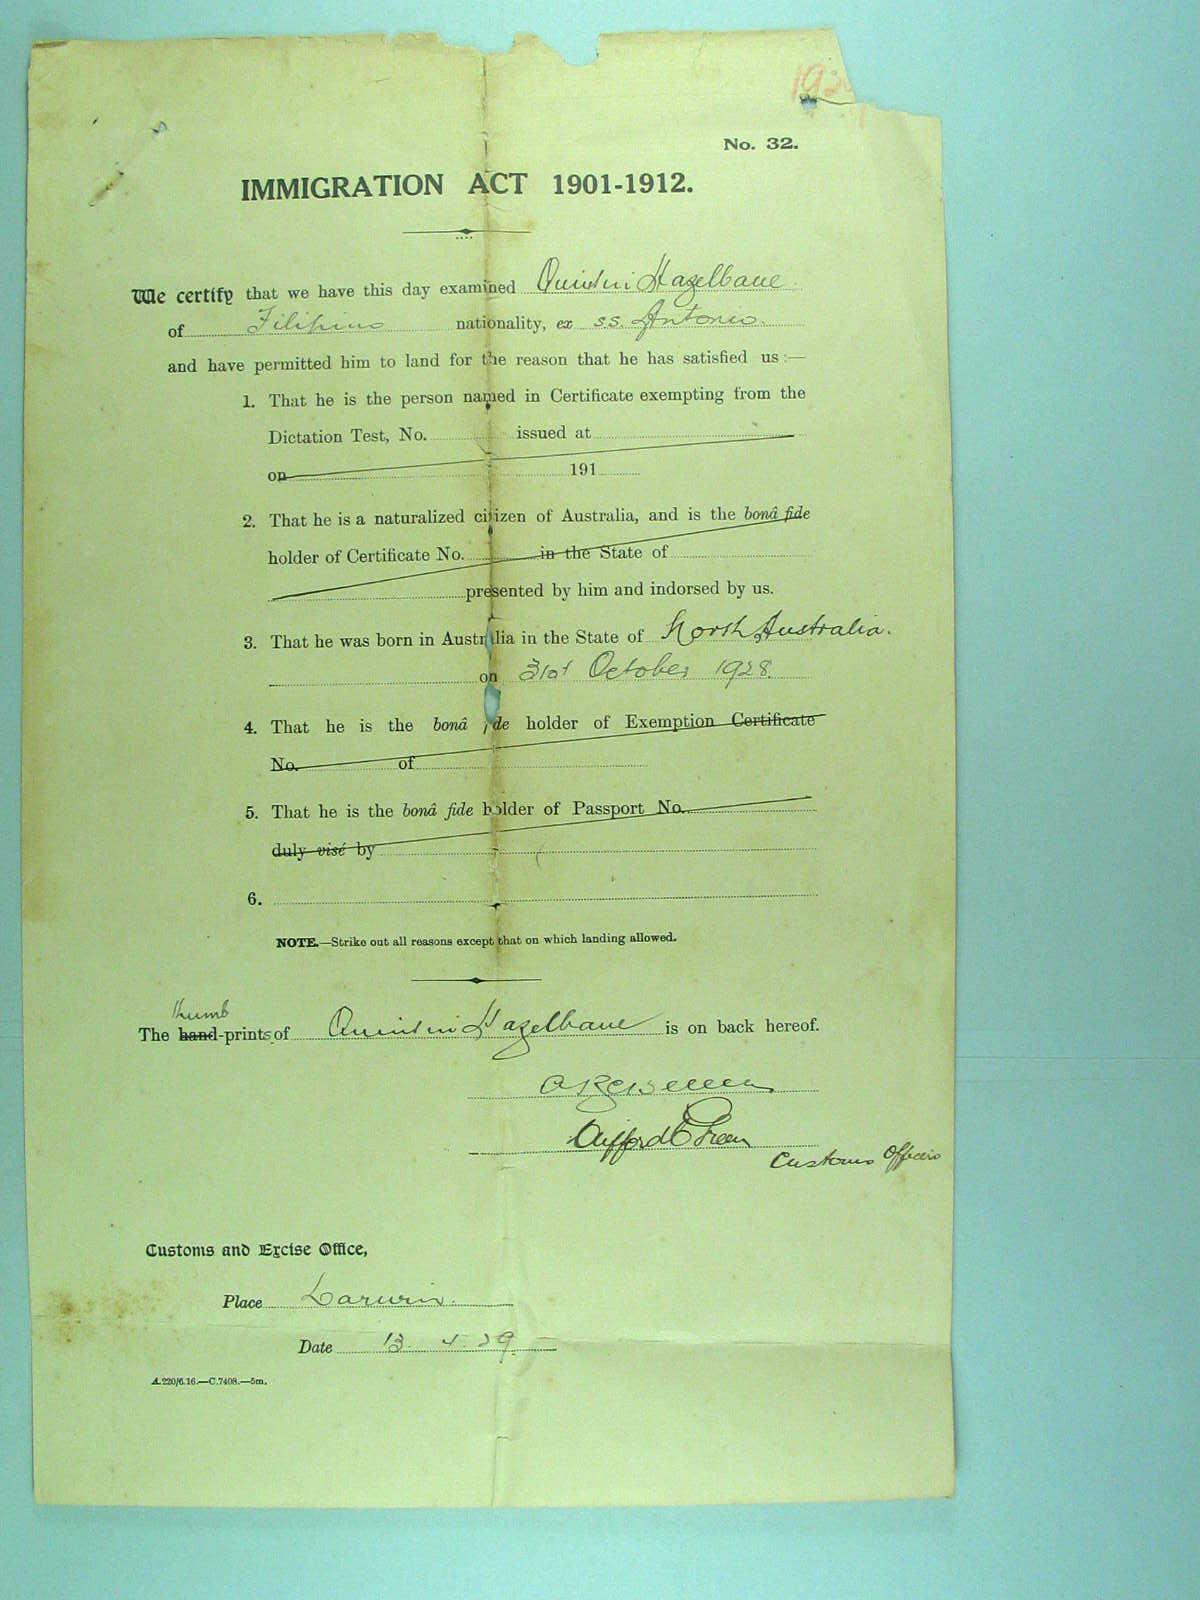 192
No. 32.
IMMIGRATION ACT 1901-1912.
We certify that we have this day examined Quintin Hazelbane
of Filipino nationality, ex s.s. Antonio.
and have permitted him to land for the reason that he has satisfied us :—
1. That he is the person named in Certificate exempting from the
Dictation Test, No. issued at
on 191
2. That he is a naturalized citizen of Australia, and is the bonâ fide
holder of Certificate No. in the State of
presented by him and indorsed by us.
3. That he was born in Australia in the State of North Australia.
on 31st October 1928.
4. That he is the bonâ fide holder of Exemption Certificate
No. of
5. That he is the bonâ fide holder of Passport No.
duly visé by
6.
NOTE.—Strike out all reasons except that on which landing allowed.
thumb
The hand-prints of Quintin Hazelbane is on back hereof.
Clifford C Green
Customs Officers
Customs and Excise Office,
Place Darwin.
Date 13.4.29.
A.220/6.16.—C.7408.—5m.